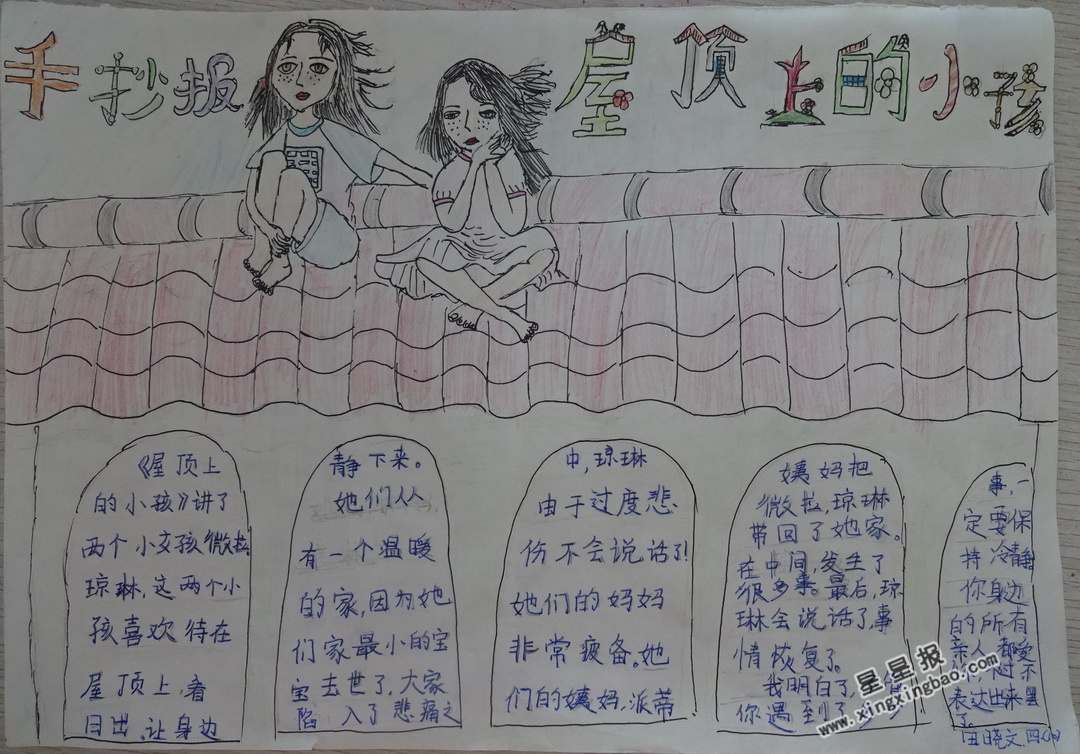 手抄报 屋顶上的小孩
《屋顶上
的小孩》讲了
两个小女孩微拉
琼琳,这两个小
孩喜欢待在
屋顶上,看
日出,让身边
静下来。
她们
有一个温暖
的家,因为她
们家最小的宝
宝去世了,大家
陷入了悲痛之
中,琼琳
由于过度悲
伤不会说话了!
她们的妈妈
非常疲备。她
们的姨妈,派蒂
姨妈把
微拉,琼琳
带回了她家。
在中间,发生了
很多事。最后,琼
琳会说话了,事
情恢复了。
我明白了,
你遇到了
事,一
定要保
持冷静
你身边
的所有
亲人都爱
不
表达出来罢
了
田晓文,四
星星报
www.xingxingbao.com